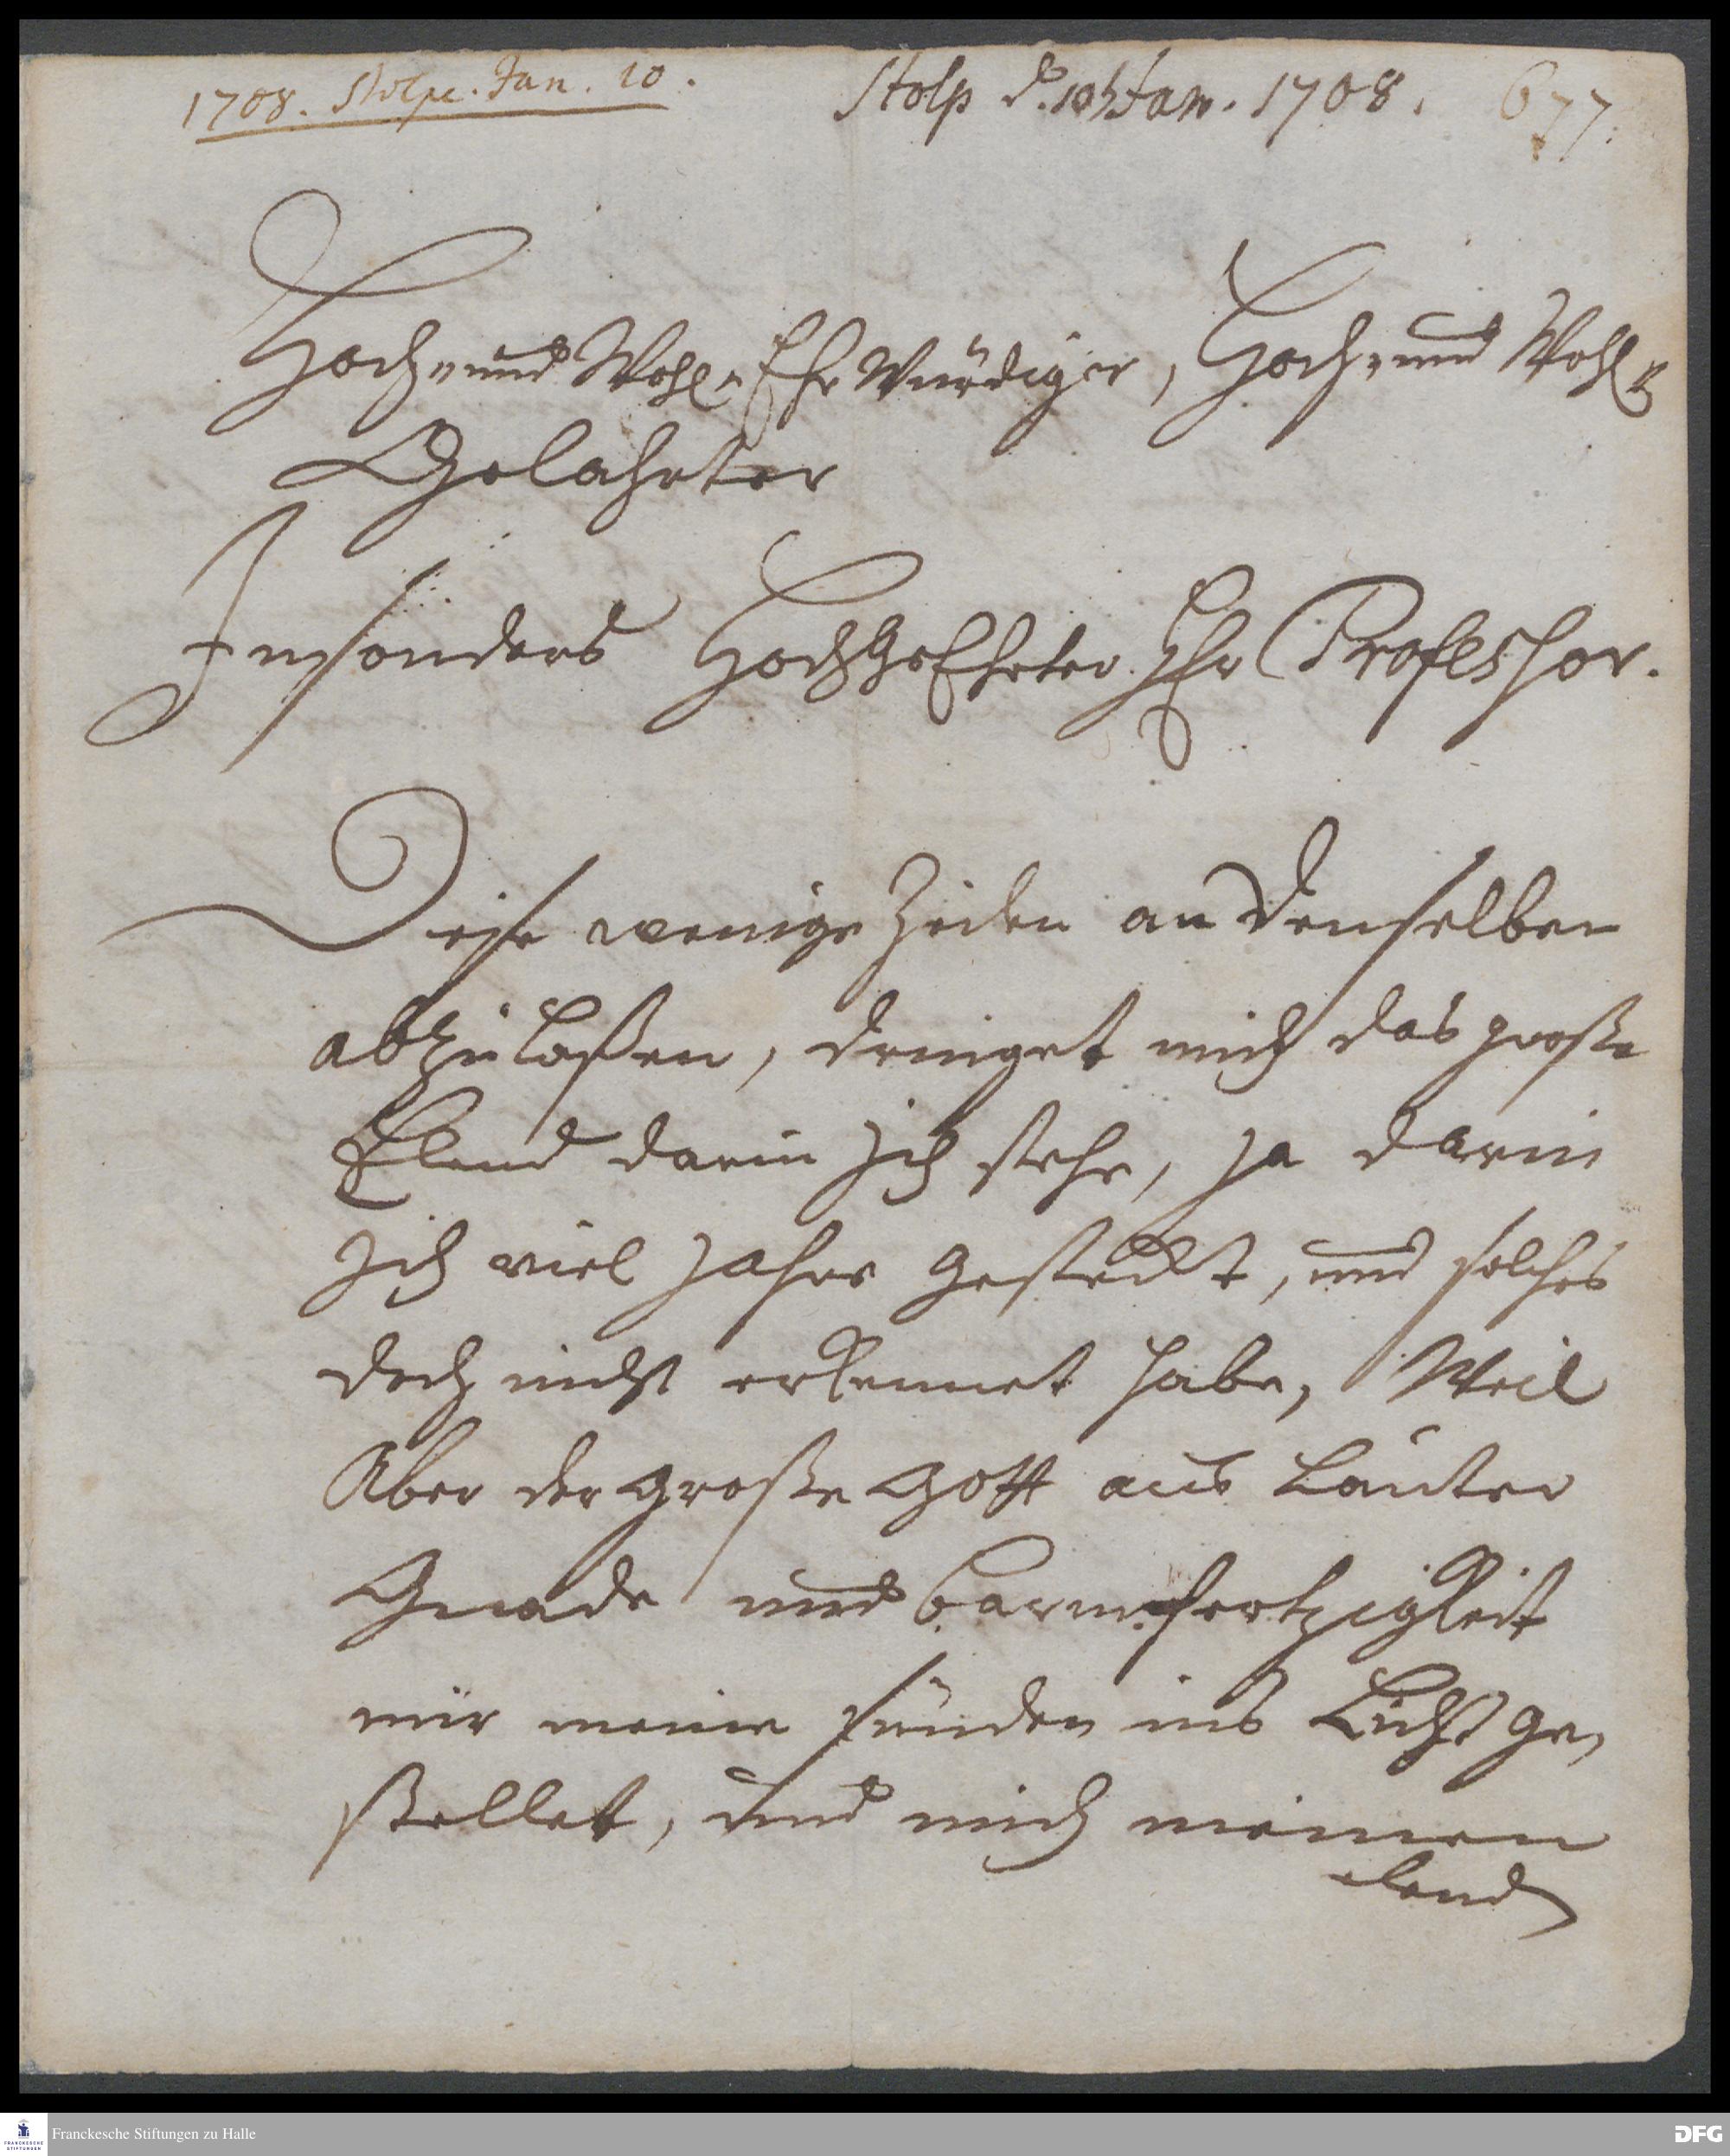 1708. Stolpe. Jan. 10.
Stolp d. 10 Jan. 1708.
677.
Hoch- und Wohl-Ehrwürdiger, Hoch- und Wohl-
Gelahrter
Insonders HochgeEhrter Hr Professor.
Diese wenige Zeilen an denselben
abzulaßen, dringet mich das große
Elend darin ich stehe, ja darin
ich viel Jahre gesteckt, und solches
doch nicht erkennet habe, Weil
Aber der große Gott aus lauter
Gnade und barmhertzigkeit
mir meine sünden ins Licht ge-
stellet, und mich meinen
elend
Franckesche Stiftungen zu Halle
FRANCKESCHE
STIFTUNGEN
DFG